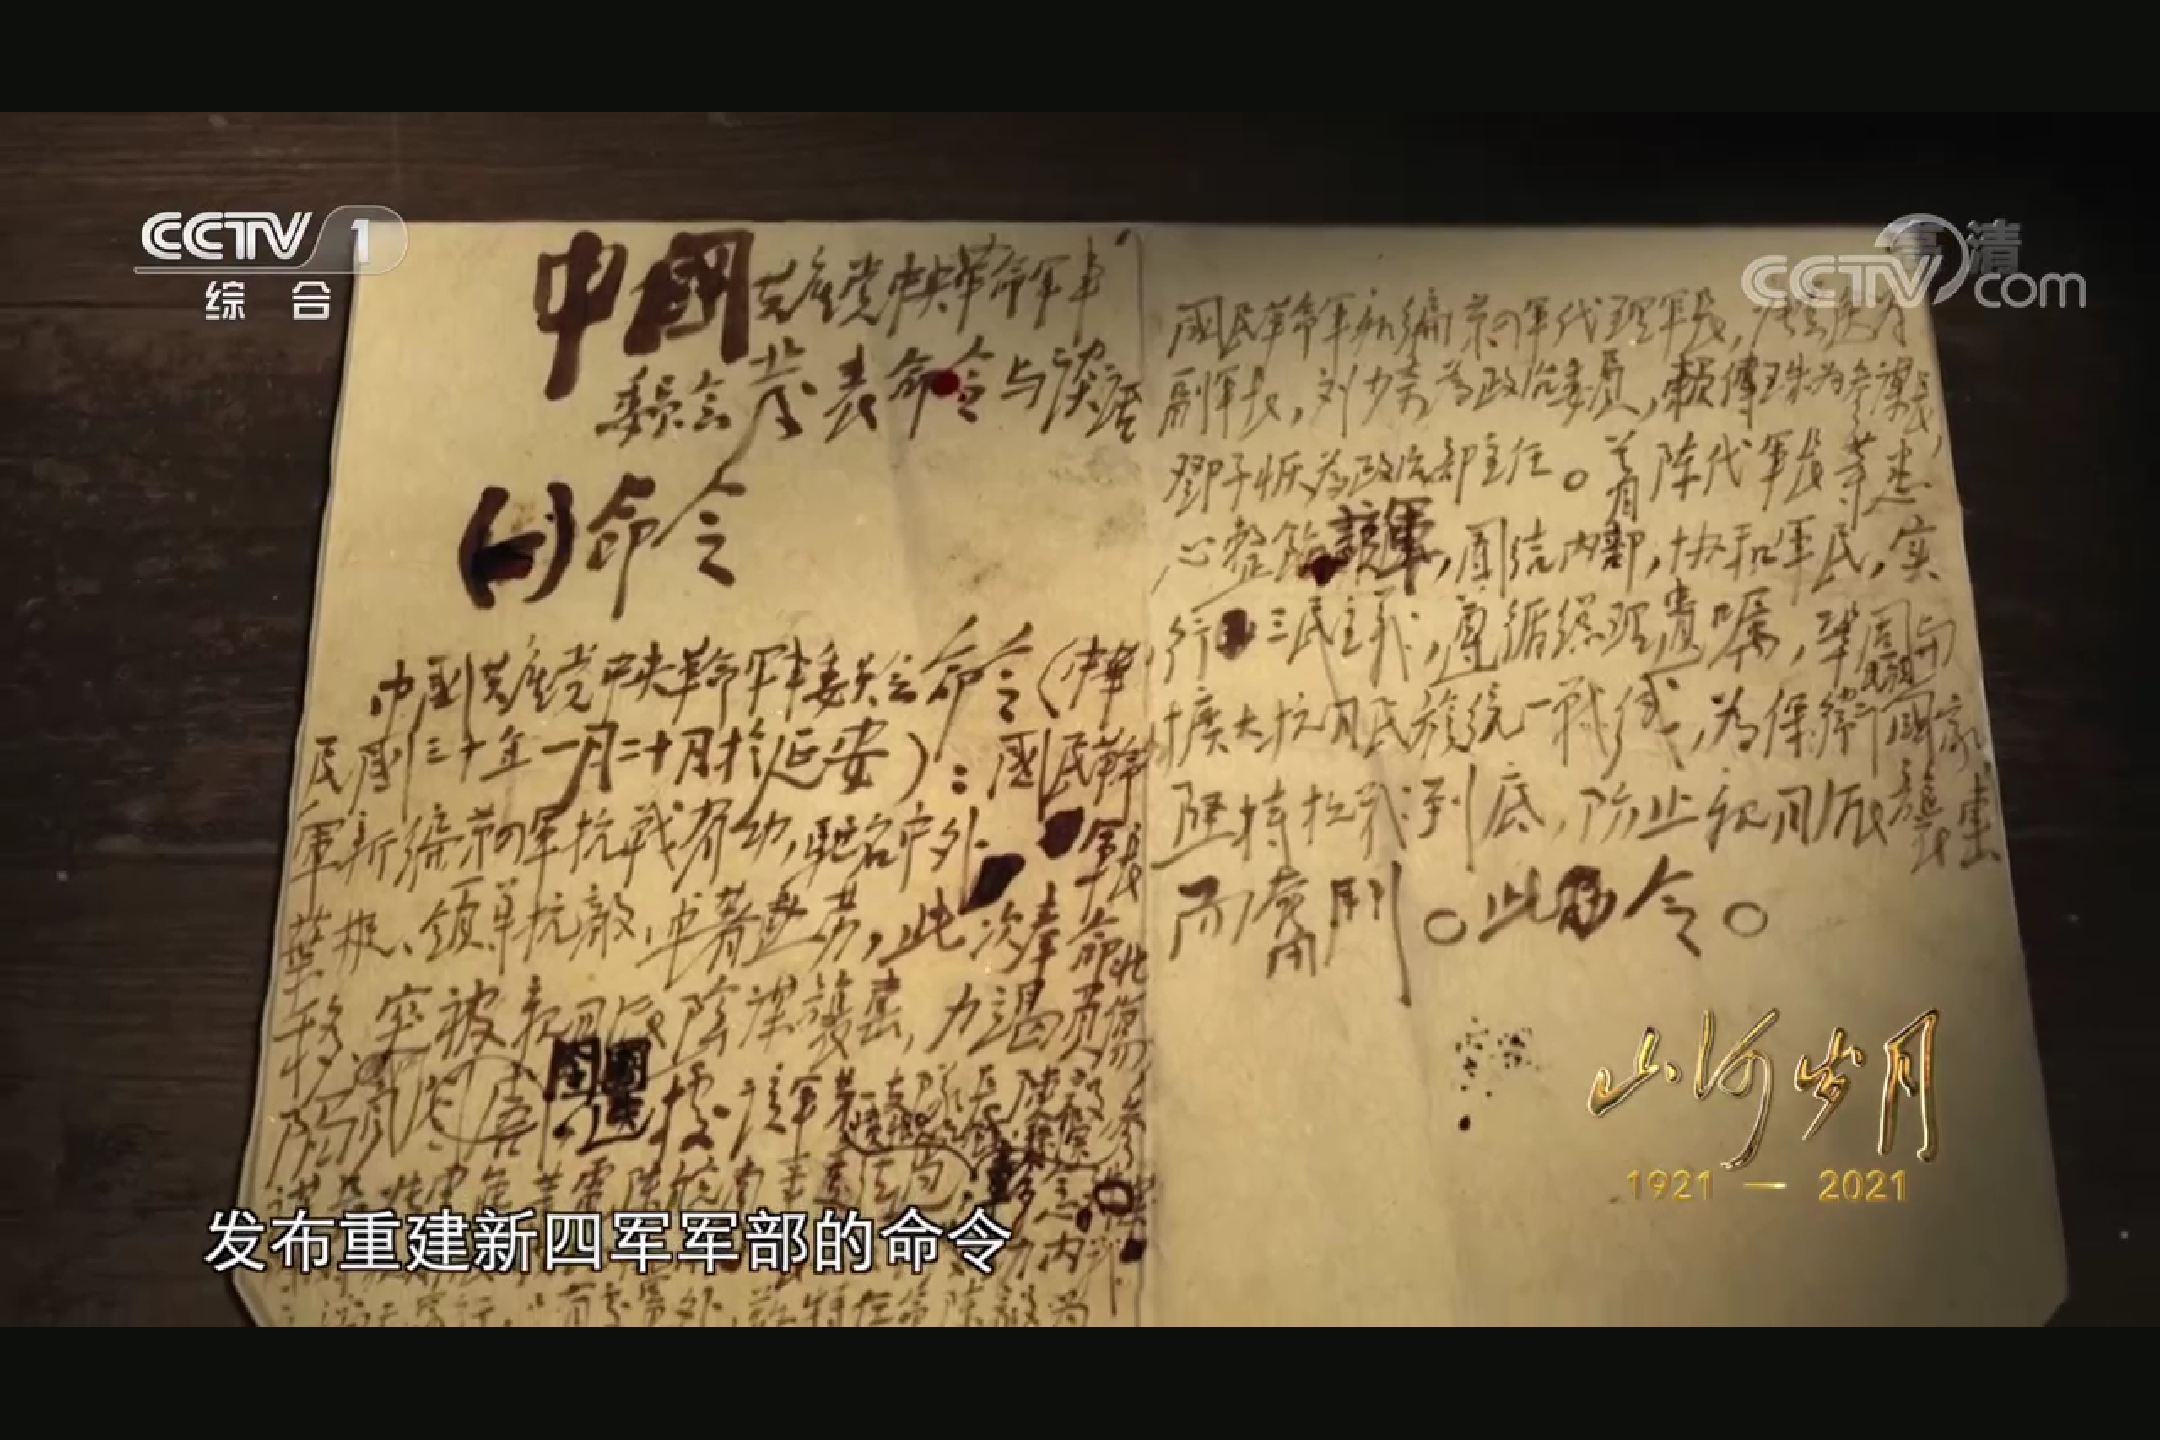 CCTV 1
综合
高清
CCTV com
中國共产党中央革命军事
委员会发表命令与谈话
命令
中国共产党中央革命军事委员会命令（中華
民国三十年一月二十日於延安）：国民革命
軍新编第四军抗战有功，驰名中外。軍長
葉挺、领导抗敵，卓著勋劳，此次奉命北
移，突被亲日派陰謀襲击，力竭负傷，
國民革命军新编第四军代理军長，张云逸为
副军長，刘少奇为政治委员，赖傳珠为参謀長，
鄧子恢为政治部主任。着陈代军長等悉
心整飭該軍，團结内部，协和军民，实
行三民主義，遵循总理遺嘱，鞏固与
擴大抗日民族统一战线，为保衛民族國家
堅持抗战到底，防止亲日派襲击
而奮鬥。此令。
山河岁月
1921 — 2021
发布重建新四军军部的命令